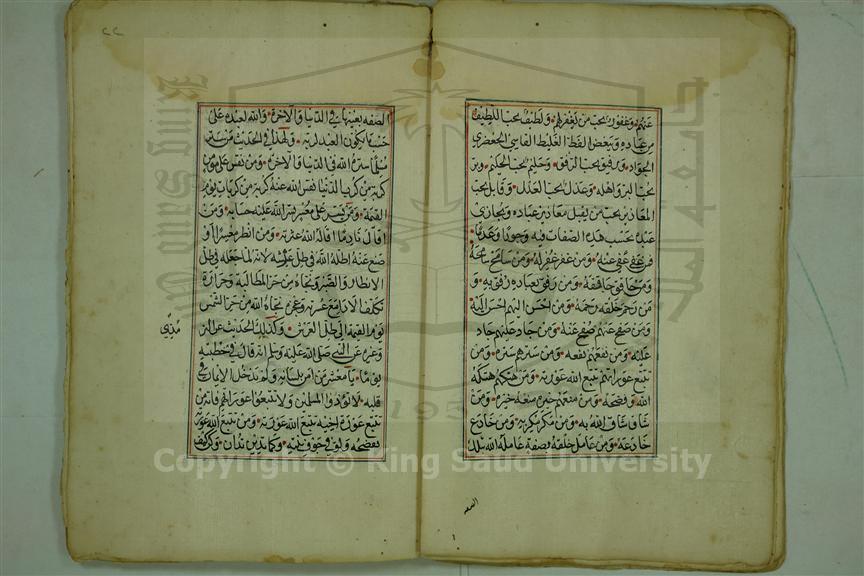 عنهم وغفور يحب من يغفر لهم ولطيف يحب اللطيف
من عباده ويبغض الفظ الغليظ القاسي الجعظري
الجواد ورفيق يحب الرفق وحليم يحب الحلم وبر
يحب البر واهله وعدل يحب العدل وقابل يحب
المعاذير يحب من يقبل معاذير عباده ويجازي
عبده بحسب هذه الصفات فيه وجودا وعدما
فمن عفى عفى عنه ومن غفر غفر له ومن سامح سامحه
ومن حاقق حاققه ومن رفق بعباده رفق به و
من رحم خلقه رحمه ومن احسن اليهم احسن اليه
ومن صفح عنهم صفح عنه ومن جاد عليهم جاد
عليه ومن نفعهم نفعه ومن سترهم ستره ومن
تتبع عوراتهم تتبع الله عورته ومن هتكهم هتكه
الله وفضحه ومن منعهم خيره منعه خيره ومن
شاق شاق الله به ومن مكر مكر به ومن خادع
خادعه ومن عامل خلقه بصفة عامله الله بتلك
الصفه
الصفه بعينها في الدنيا والآخرة والله لعبده على
حسب ما يكون العبد لربه ولهذا في الحديث من ستر
مسلما ستره الله في الدنيا والآخرة ومن نفس على مؤمن
كربة من كرب الدنيا نفس الله عنه كربة من كربات يوم
القيمة ومن يسر على معسر يسر الله عليه حسابه ومن
اقال نادما اقاله الله عثرته ومن انظر معسرا او
وضع عنه اظله الله في ظل عرشه لانه لما جعله في ظل
الانظار والصبر ونجاه من حر المطالبة وحرارة
تكلف الاداء مع عسرته وعجزه نجاه الله من حر الشمس
يوم القيمة الى ظل العرش وكذلك الحديث عن الترمذي
وغيره عن النبي صلى الله عليه وسلم انه قال في خطبته
يوما يا معشر من امن بلسانه ولم يدخل الايمان في
قلبه لا تؤذوا المسلمين ولا تتبعوا عوراتهم فانه من
تتبع عورة اخيه تتبع الله عورته ومن تتبع الله عورته
يفضحه ولو في جوف بيته وكما تدين تدان وكن كيف
Copyright © King Saud University
جامعة الملك سعود
1957